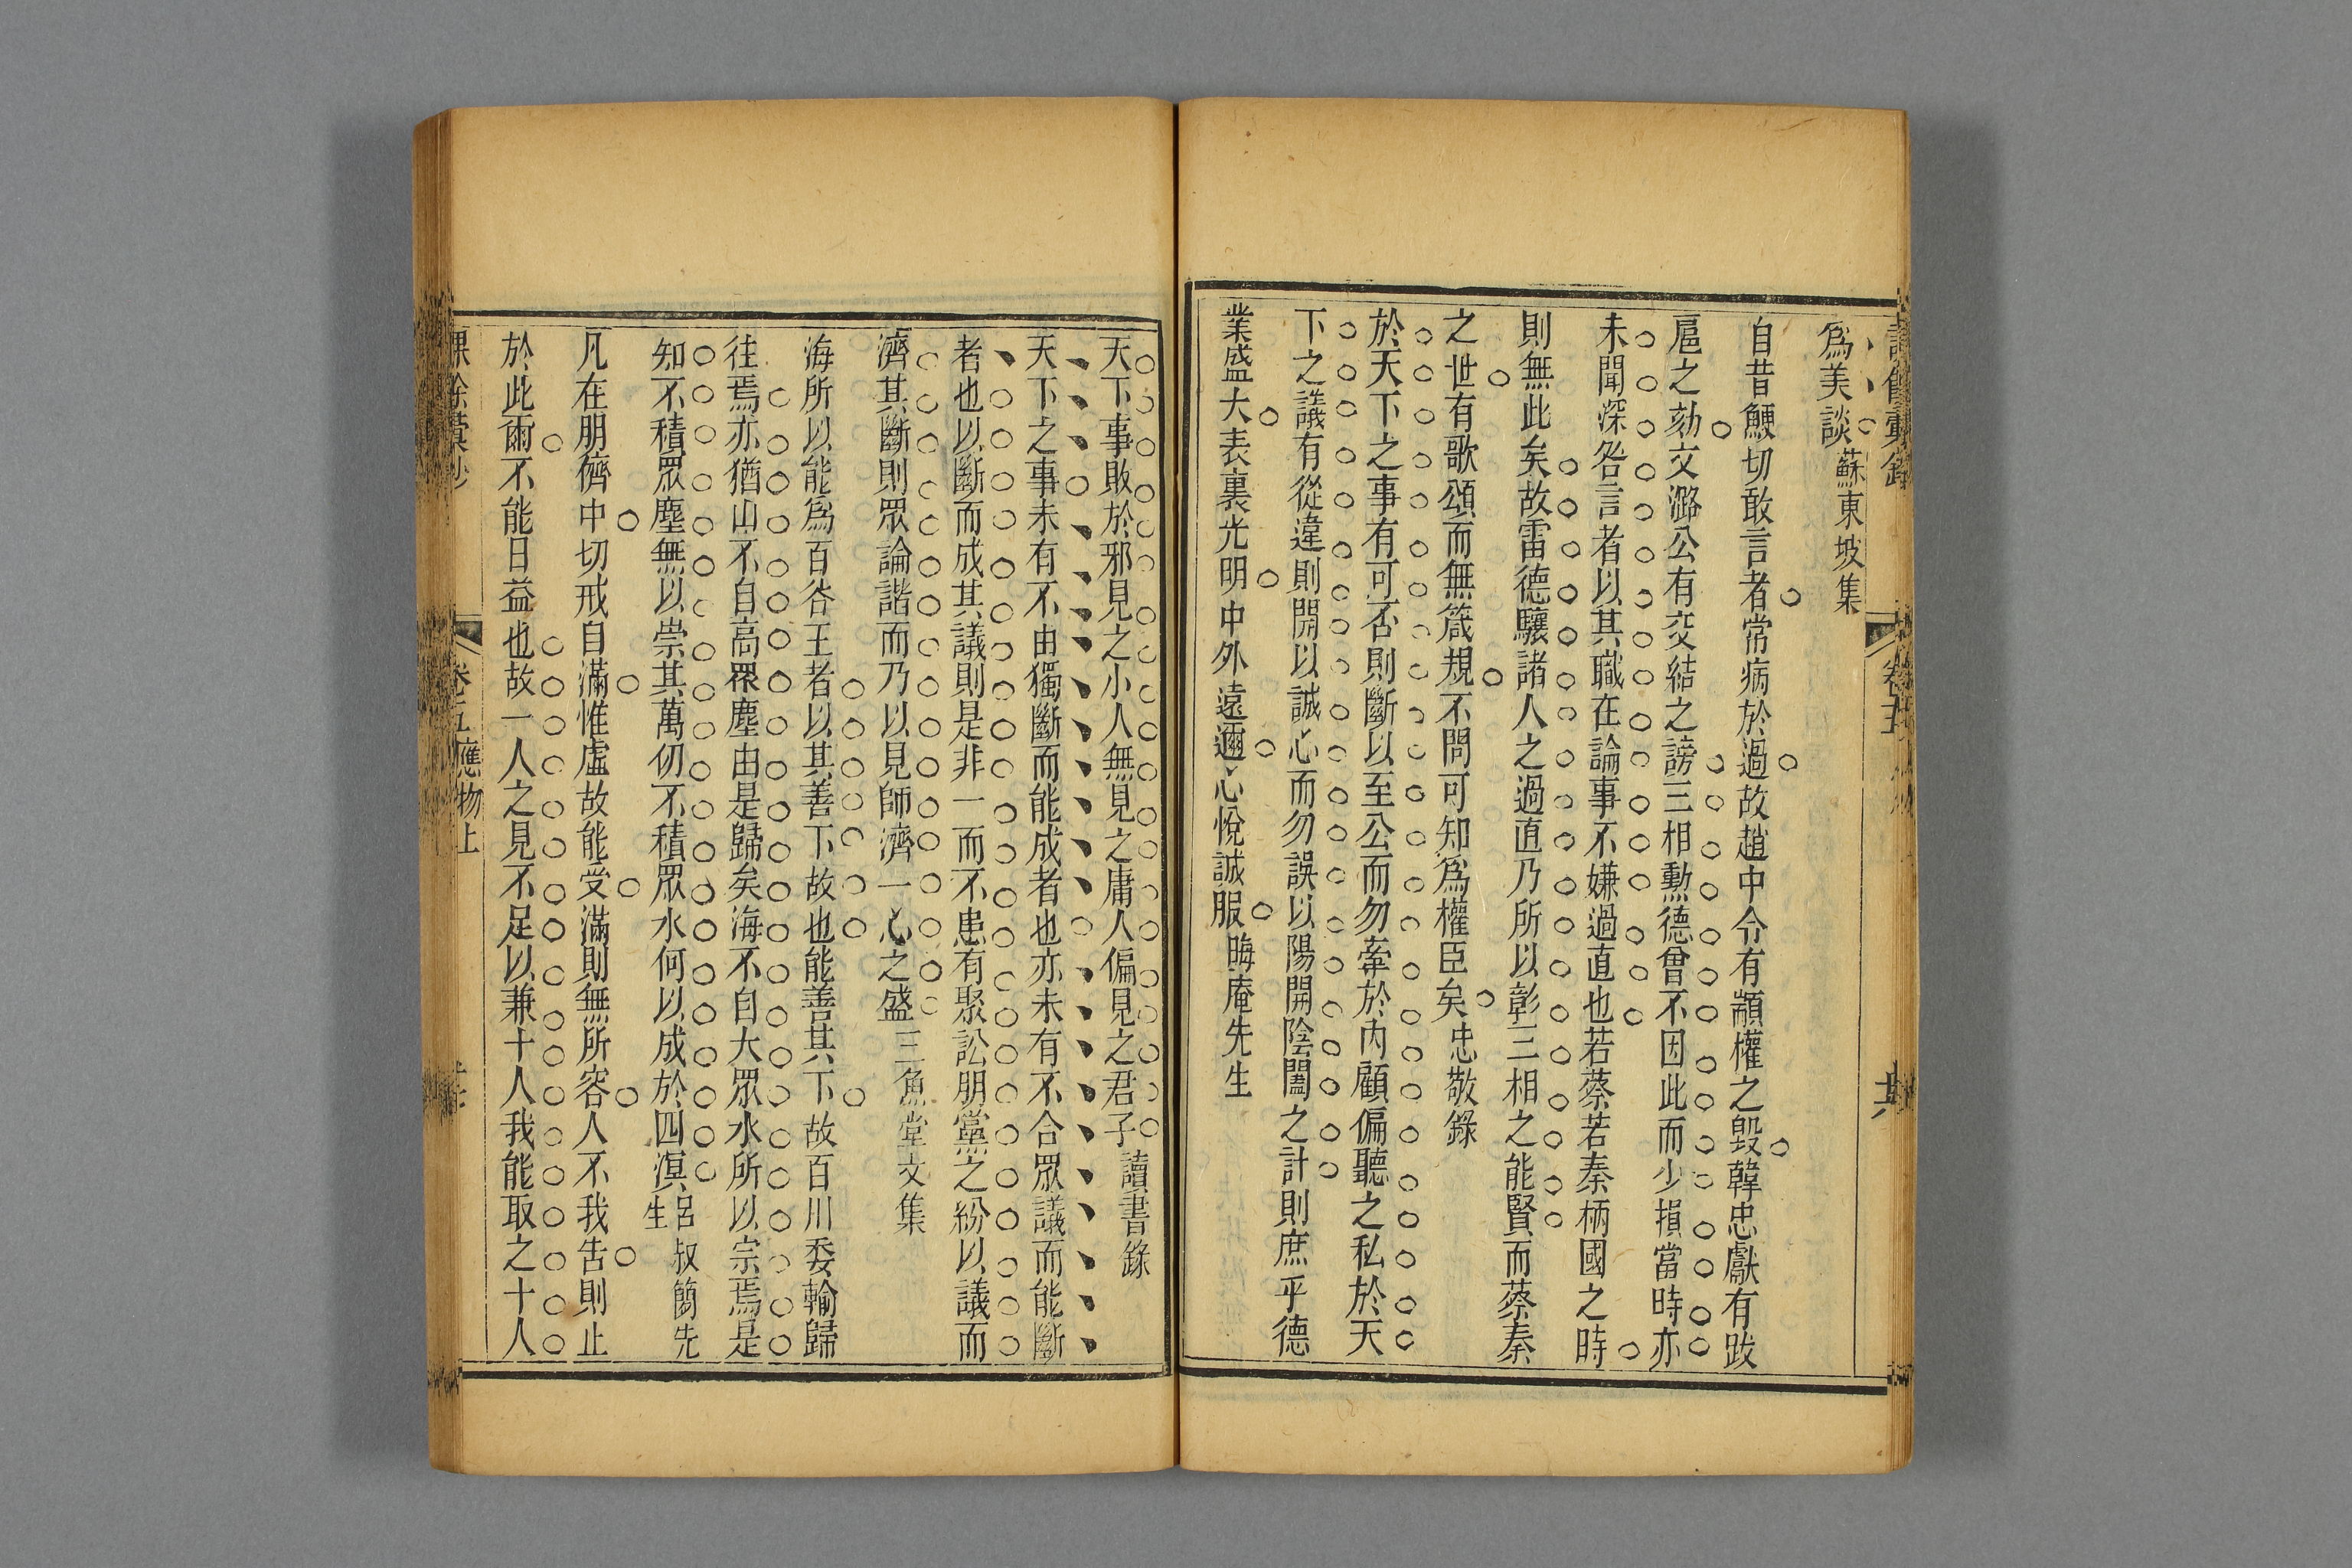 爲美談蘇東坡集
自昔鯁切敢言者常病於過故趙中令有顓權之毀韓忠獻有跋
扈之劾文潞公有交結之謗三相勲德曾不因此而少損當時亦
未聞深咎言者以其職在論事不嫌過直也若蔡若秦柄國之時
則無此矣故雷德驤諸人之過直乃所以彰三相之能賢而蔡秦
之世有歌頌而無箴規不問可知爲權臣矣忠敬錄
於天下之事有可否則斷以至公而勿牽於內顧偏聽之私於天
下之議有從違則開以誠心而勿誤以陽開陰闔之計則庶乎德
業盛大表裏光明中外遠邇心悅誠服晦庵先生
天下事敗於邪見之小人無見之庸人偏見之君子讀書錄
天下之事未有不由獨斷而能成者也亦未有不合眾議而能斷
者也以斷而成其議則是非一而不患有聚訟朋黨之紛以議而
濟其斷則眾論諧而乃以見師濟一心之盛三魚堂文集
海所以能爲百谷王者以其善下故也能善其下故百川委輸歸
往焉亦猶山不自高眾塵由是歸矣海不自大眾水所以宗焉是
知不積眾塵無以崇其萬仞不積眾水何以成於四溟呂叔簡先生
凡在朋儕中切戒自滿惟虛故能受滿則無所容人不我告則止
於此爾不能日益也故一人之見不足以兼十人我能取之十人
卷五應物上